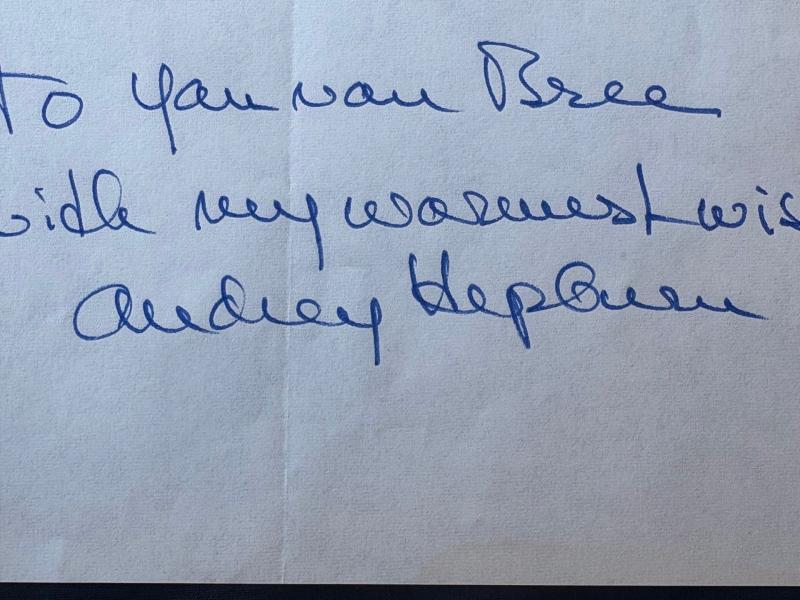 To Yan van Bree
with my warmest wis
Audrey Hepburn